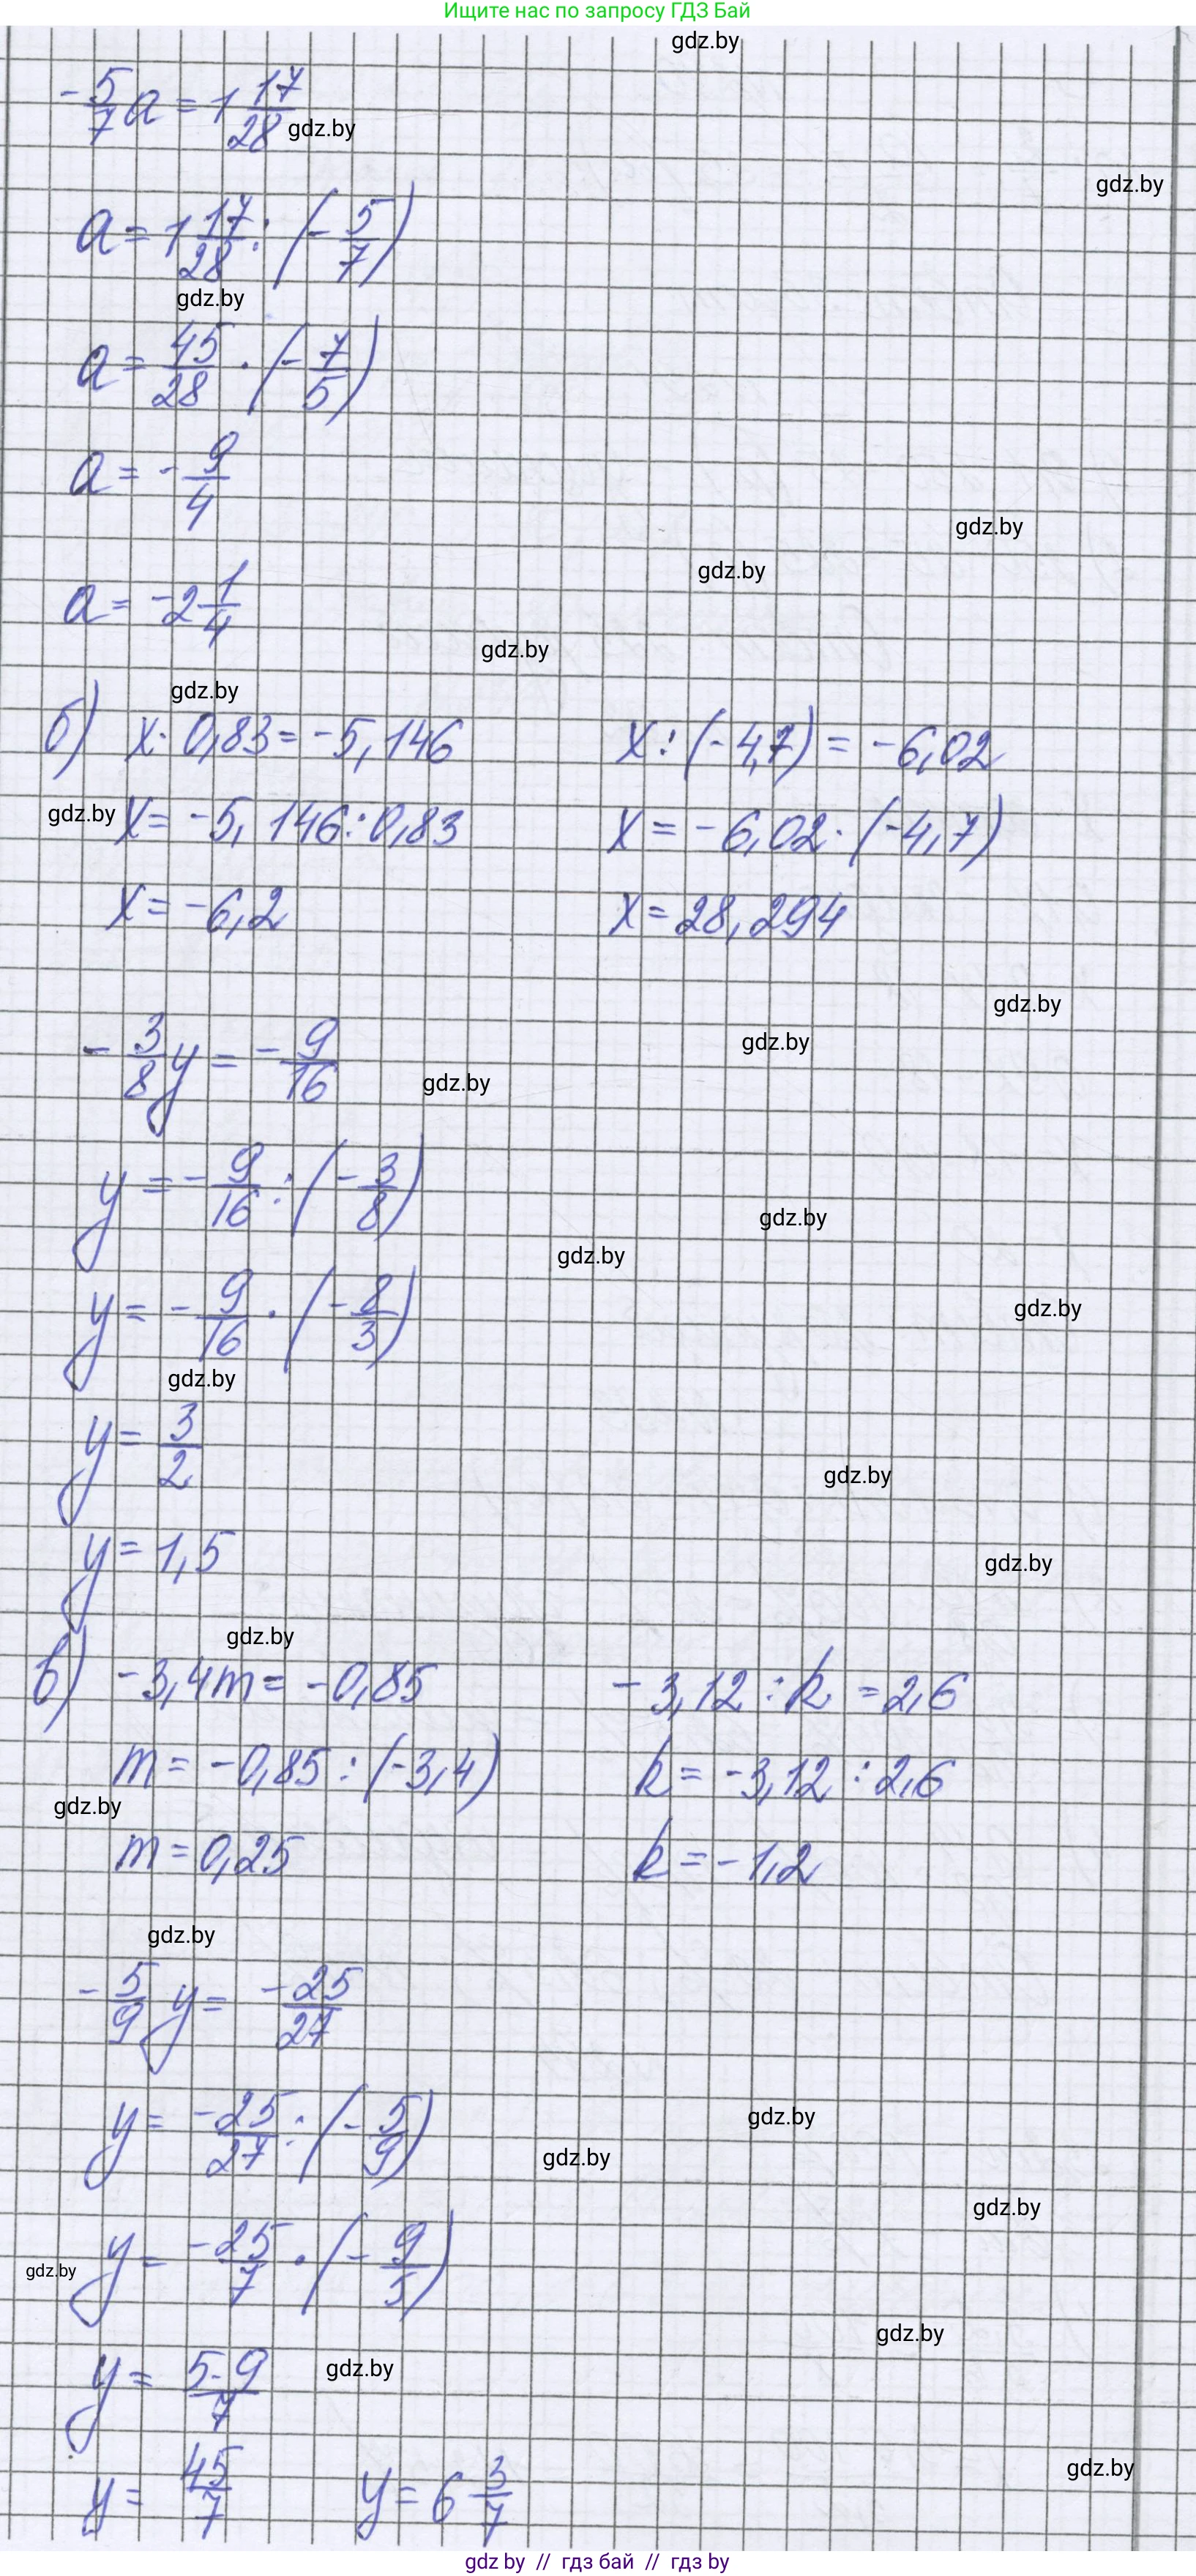 Ищите нас по запросу ГДЗ Бай
gdz.by
-5/7 a = 1 17/28
gdz.by
gdz.by
a = 1 17/28 : (-5/7)
gdz.by
a = 45/28 · (-7/5)
a = -9/4
gdz.by
gdz.by
a = -2 1/4
gdz.by
gdz.by
б) x · 0,83 = -5,146
x : (-4,7) = -6,02
gdz.by
x = -5,146 : 0,83
x = -6,02 · (-4,7)
x = -6,2
x = 28,294
gdz.by
gdz.by
-3/8 y = -9/16
gdz.by
y = -9/16 : (-3/8)
gdz.by
gdz.by
gdz.by
y = -9/16 · (-8/3)
gdz.by
y = 3/2
gdz.by
y = 1,5
gdz.by
gdz.by
в) -3,4m = -0,85
-3,12 : k = 2,6
m = -0,85 : (-3,4)
k = -3,12 : 2,6
gdz.by
m = 0,25
k = -1,2
gdz.by
-5/9 y = -25/27
y = -25/27 : (-5/9)
gdz.by
gdz.by
gdz.by
y = -25/7 · (-9/5)
gdz.by
gdz.by
y = 5·9/7
gdz.by
gdz.by
y = 45/7
y = 6 3/7
gdz by // гдз бай // гдз by